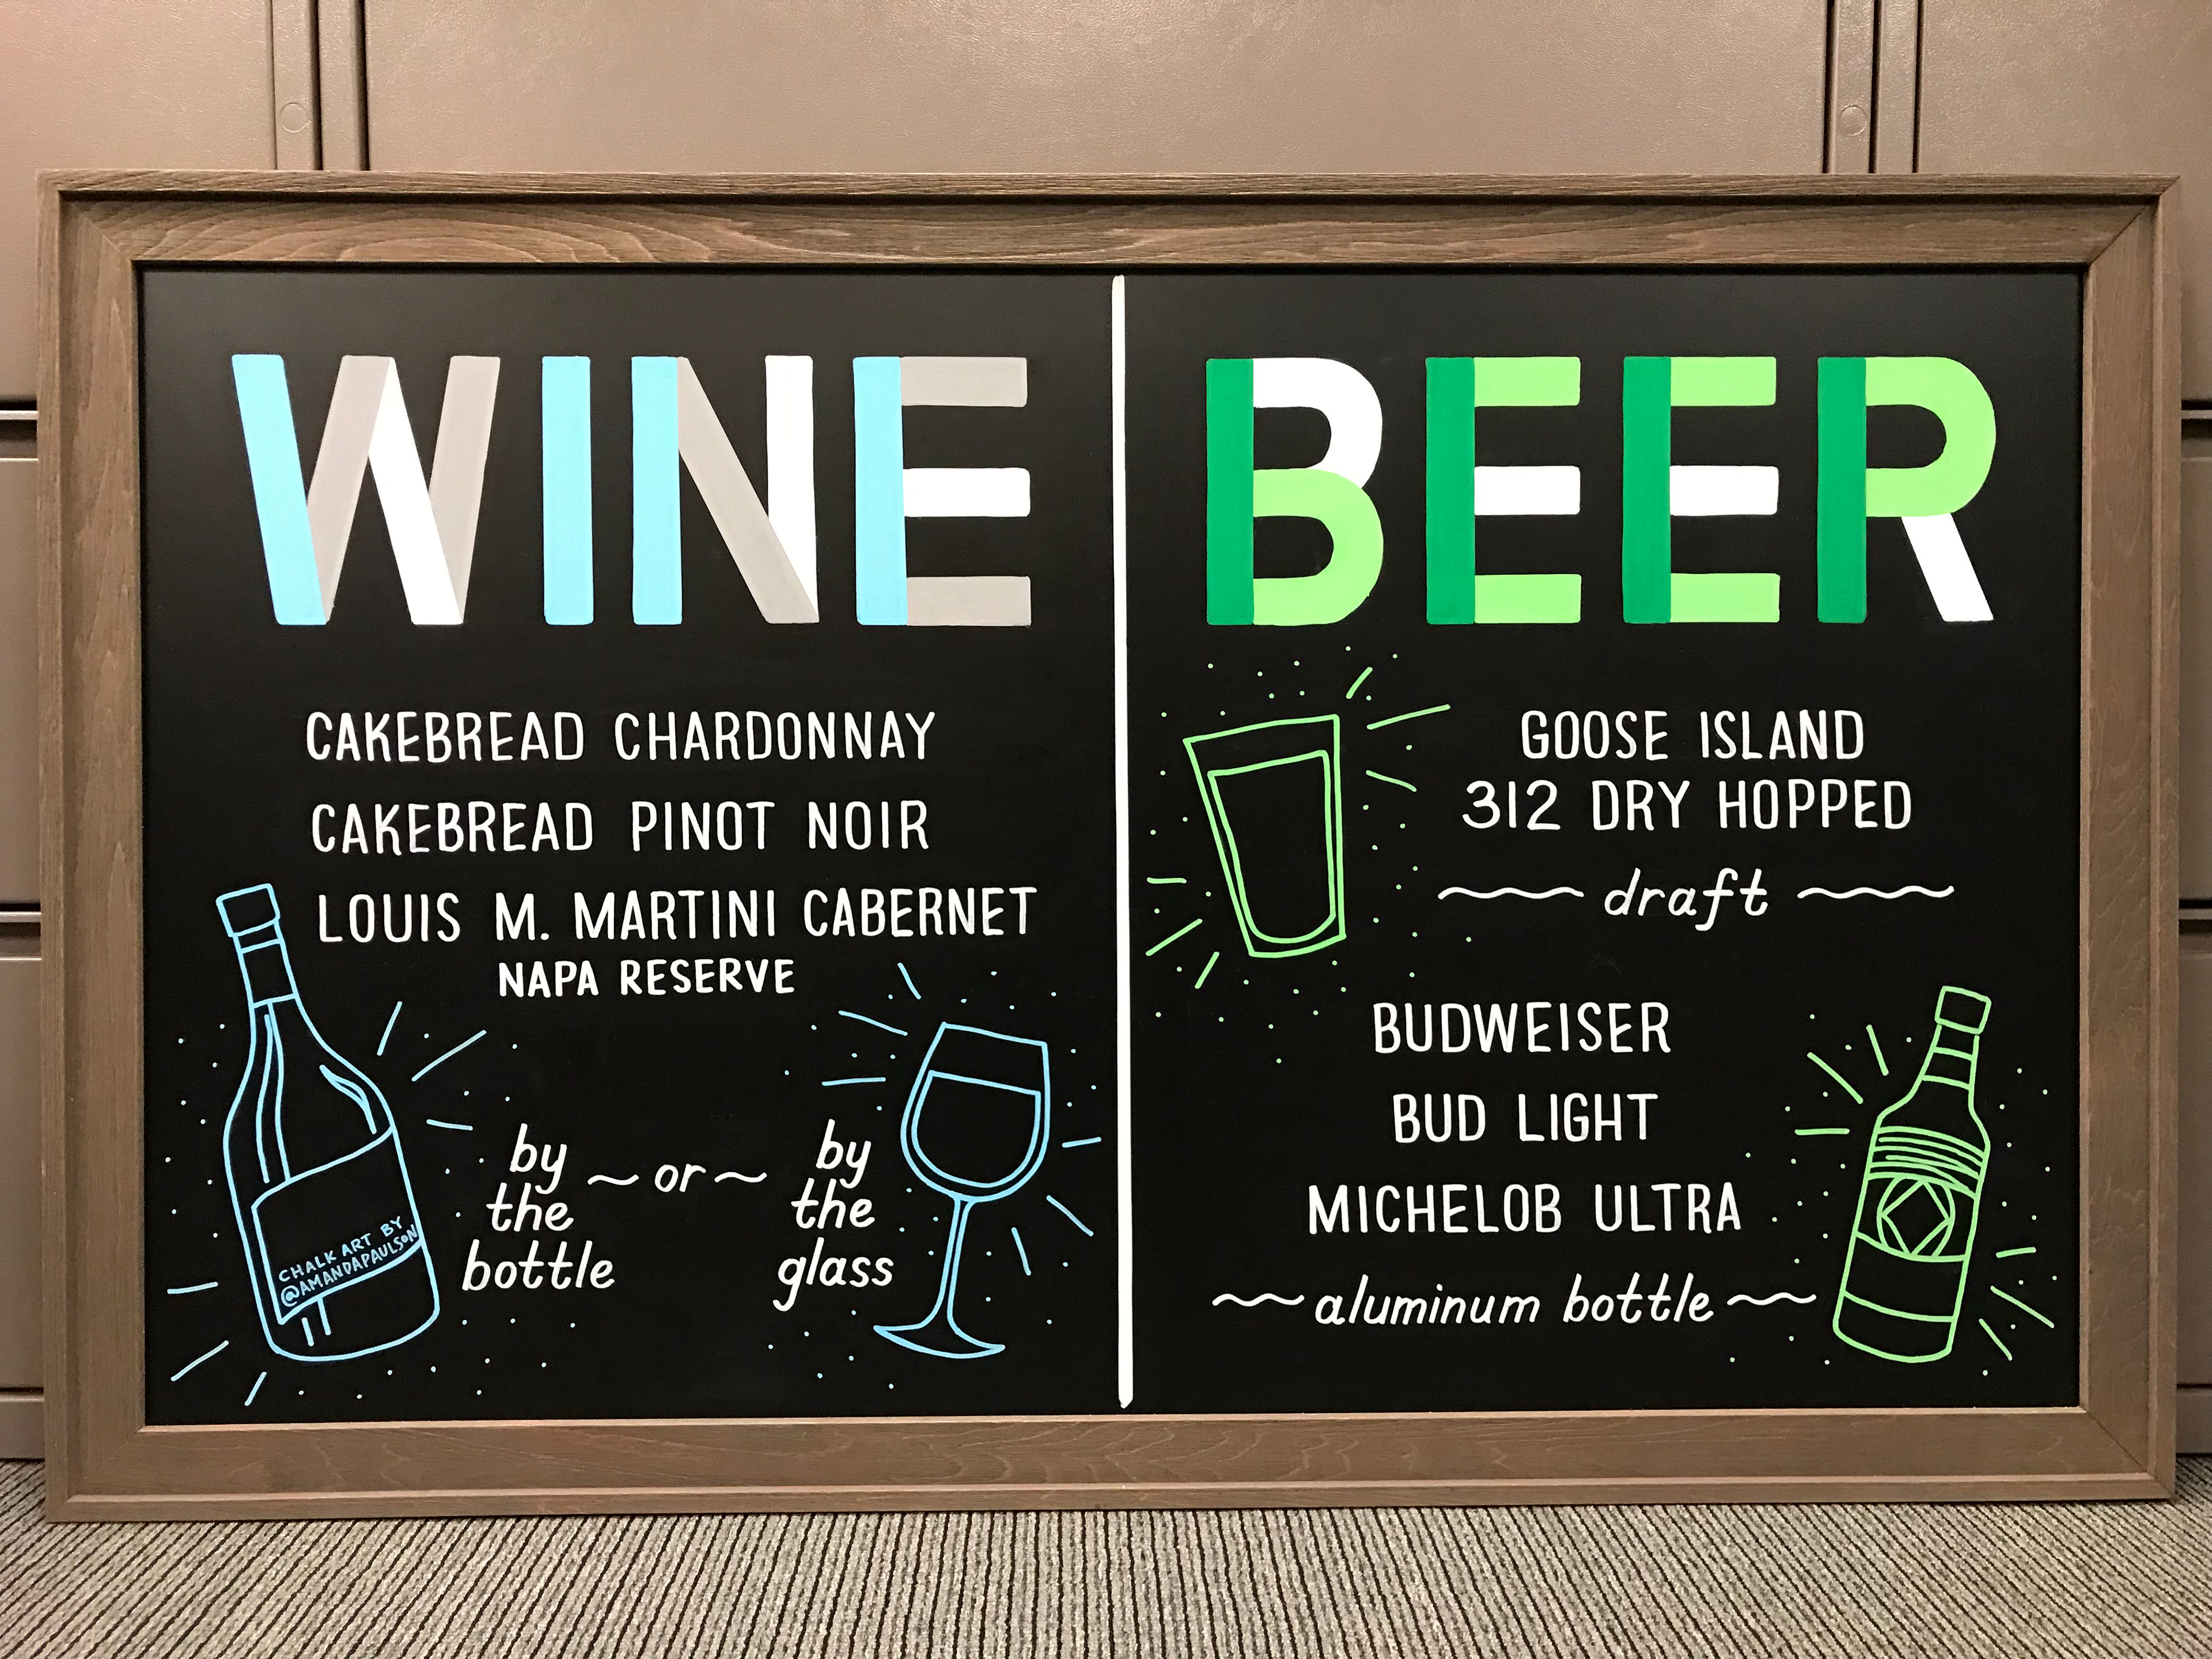 WINE
CAKEBREAD CHARDONNAY
CAKEBREAD PINOT NOIR
LOUIS M. MARTINI CABERNET
NAPA RESERVE
by the bottle
~ or ~
by the glass
CHALK ART BY
@AMANDAPAULSON
BEER
GOOSE ISLAND
312 DRY HOPPED
draft
BUDWEISER
BUD LIGHT
MICHELOB ULTRA
aluminum bottle